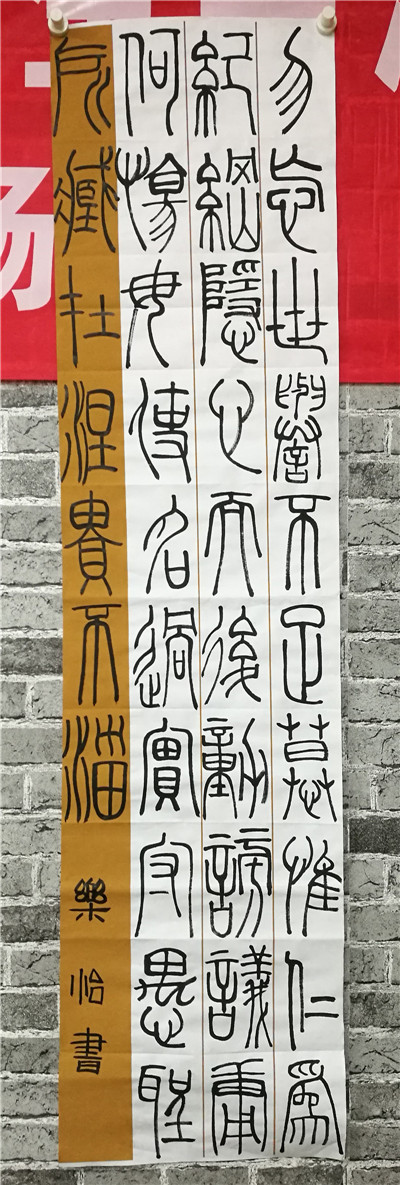 勿忘世譽不足慕惟仁為
紀綱隱心而後動謗議庸
何傷毋使名過實守愚聖
所臧在涅貴不淄
樂怡書